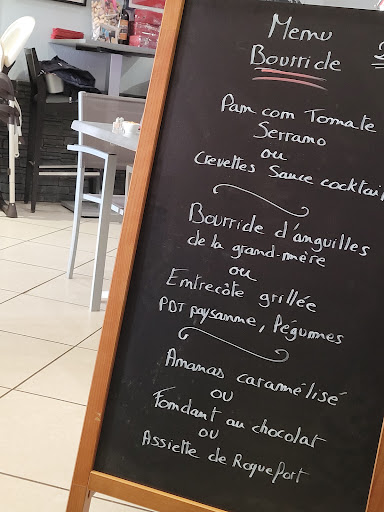 Menu
Bourride
Pam com Tomate
Serramo
ou
Crevettes Sauce cocktail
Bourride d'anguilles
de la grand-mère
ou
Entrecôte grillée
PDT paysanne, légumes
Ananas caramélisé
ou
Fondant au chocolat
ou
Assiette de Roquefort